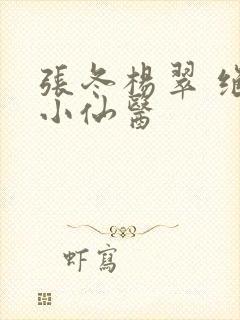 張冬楊翠 
小仙醫
虾寫